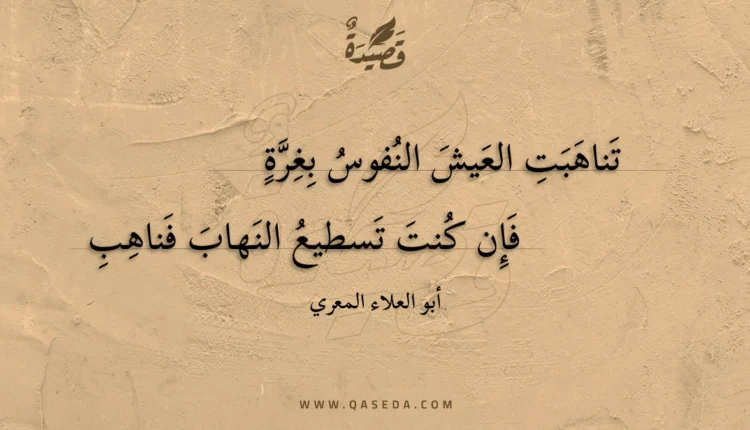 قَصِيدَةٌ
تَناهَبَتِ العَيشَ النُفوسُ بِغِرَّةٍ
فَإِن كُنتَ تَسطيعُ النَهابَ فَناهِبِ
أبو العلاء المعري
WWW.QASEDA.COM